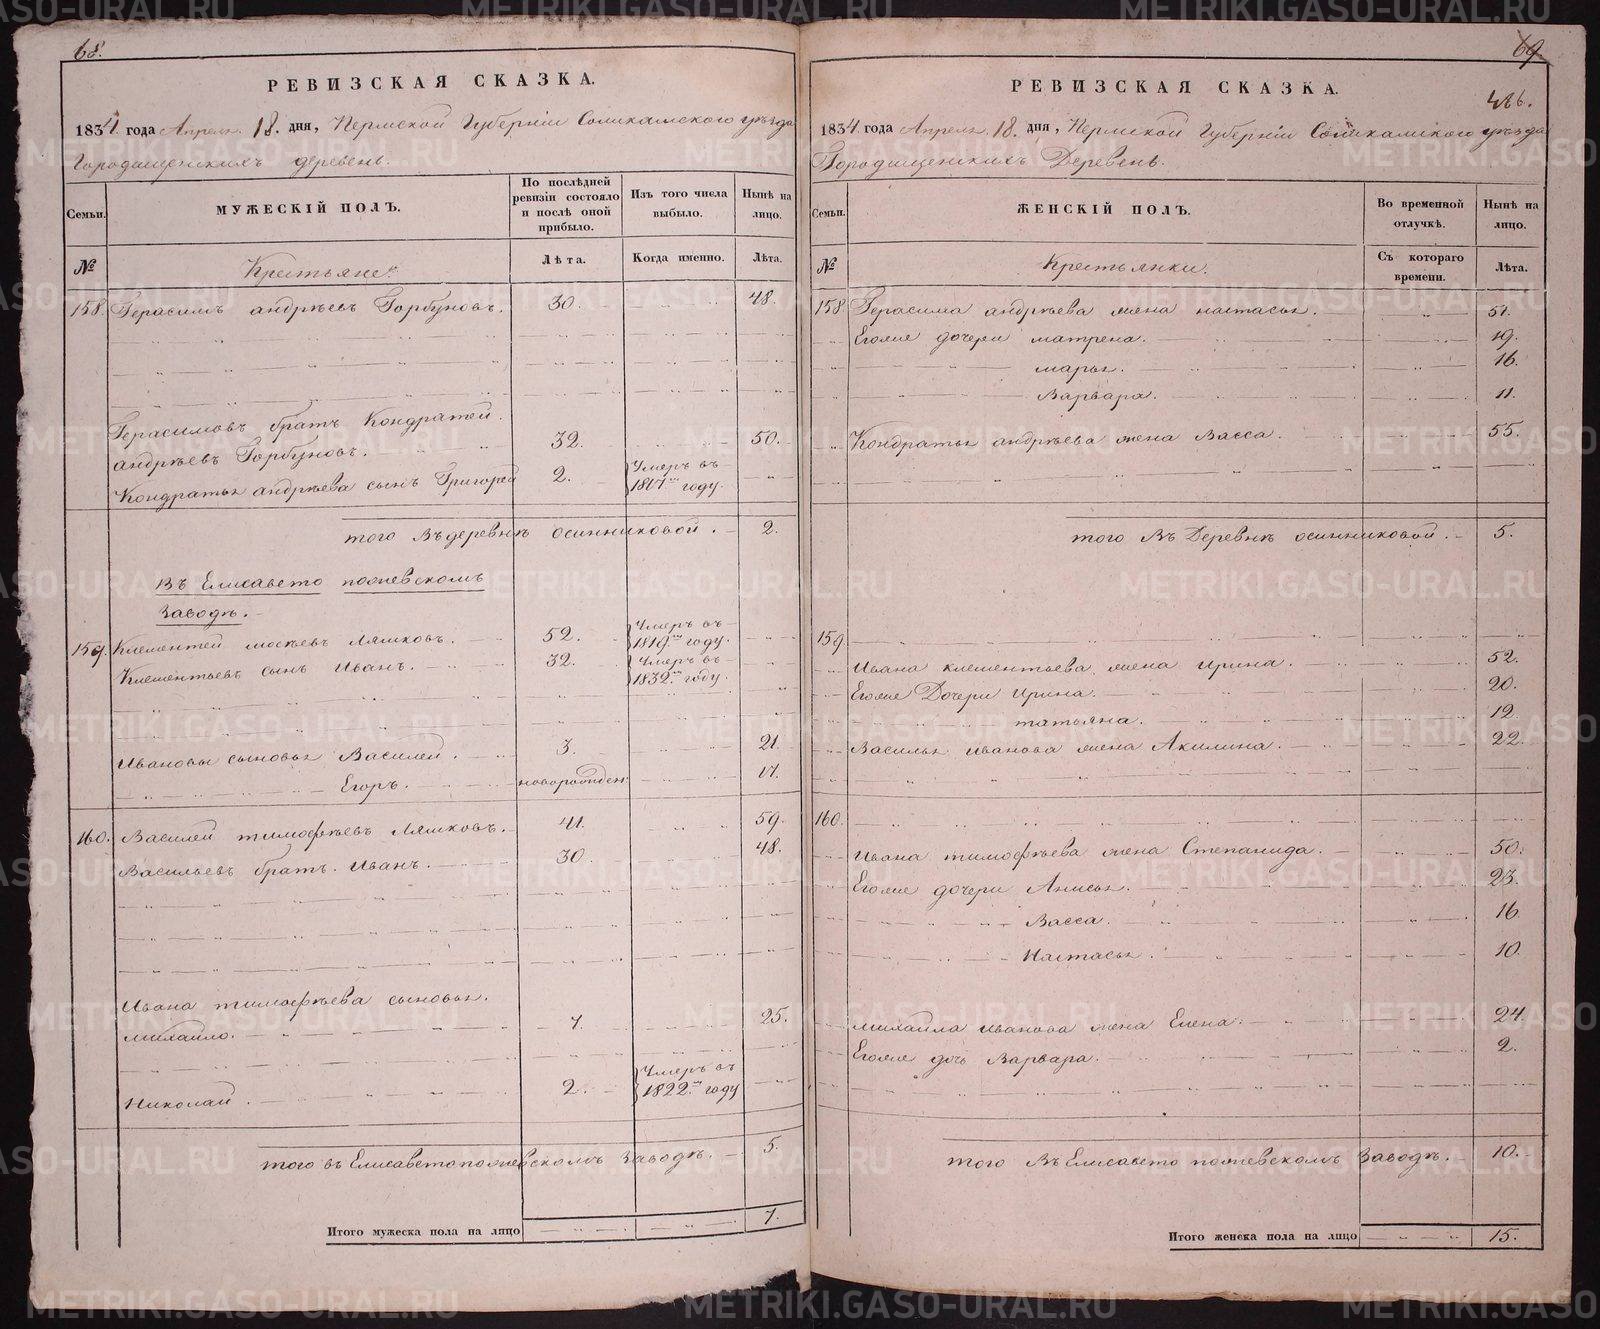 68.
РЕВИЗСКАЯ СКАЗКА.
1834 года Апреля 18. дня, Пермской Губерніи Соликамского уѣзда
Городищенскихъ деревень.
Семьи.
МУЖЕСКІЙ ПОЛЪ.
По послѣдней ревизіи состояло и послѣ оной прибыло.
Изъ того числа выбыло.
Нынѣ на лицо.
№
Крестьяне.
Лѣта.
Когда именно.
Лѣта.
158. Герасимъ андрѣевъ Горбуновъ. 30. 48.
Герасимовъ братъ Кондратей
андрѣевъ Горбуновъ. 32. 50.
Кондратья андрѣева сынъ Григорей 2. Умеръ въ
1817м году.
того въ деревнѣ осинниковой. 2.
Въ Елисавето пожевскомъ
Заводѣ.
159. Клементей мосѣевъ Ляшковъ. 52. Умеръ въ
1819м году.
Клементьевъ сынъ Иванъ. 32. Умеръ въ
1832м году.
Ивановы сыновья Василей. 3. 21.
Егоръ. новорожден: 17.
160. Василей тимофѣевъ Ляшковъ. 41. 59.
Васильевъ братъ Иванъ. 30. 48.
Ивана тимофѣева сыновья.
михайло. 7. 25.
Николай. 2. Умеръ въ
1822м году
того въ Елисаветопожевскомъ заводѣ. 5.
Итого мужеска пола на лицо 7.
69.
РЕВИЗСКАЯ СКАЗКА.
486.
1834 года Апреля 18. дня, Пермской Губерніи Соликамского уѣзда
Городищенскихъ Деревень.
Семьи.
ЖЕНСКІЙ ПОЛЪ.
Во временной отлучкѣ.
Нынѣ на лицо.
№
Крестьянки.
Съ котораго времени.
Лѣта.
158 Герасима андрѣева жена настасья. 51.
Егоже дочери матрена. 19.
марья. 16.
Варвара. 11.
Кондратья андрѣева жена Васса. 55.
того Въ Деревнѣ осинниковой. 5.
159.
Ивана клементьева жена ирина. 52.
Егоже Дочери ирина. 20.
татьяна. 12
Василья иванова жена Акилина. 22.
160.
Ивана тимофѣева жена Степанида. 50.
Егоже дочери Анисья. 23.
Васса. 16
Настасья. 10.
михайла иванова жена Елена. 24
Егоже дочь Варвара. 2.
того Въ Елисавето пожевскомъ Заводѣ. 10.
Итого женска пола на лицо 15.
METRIKI.GASO-URAL.RU